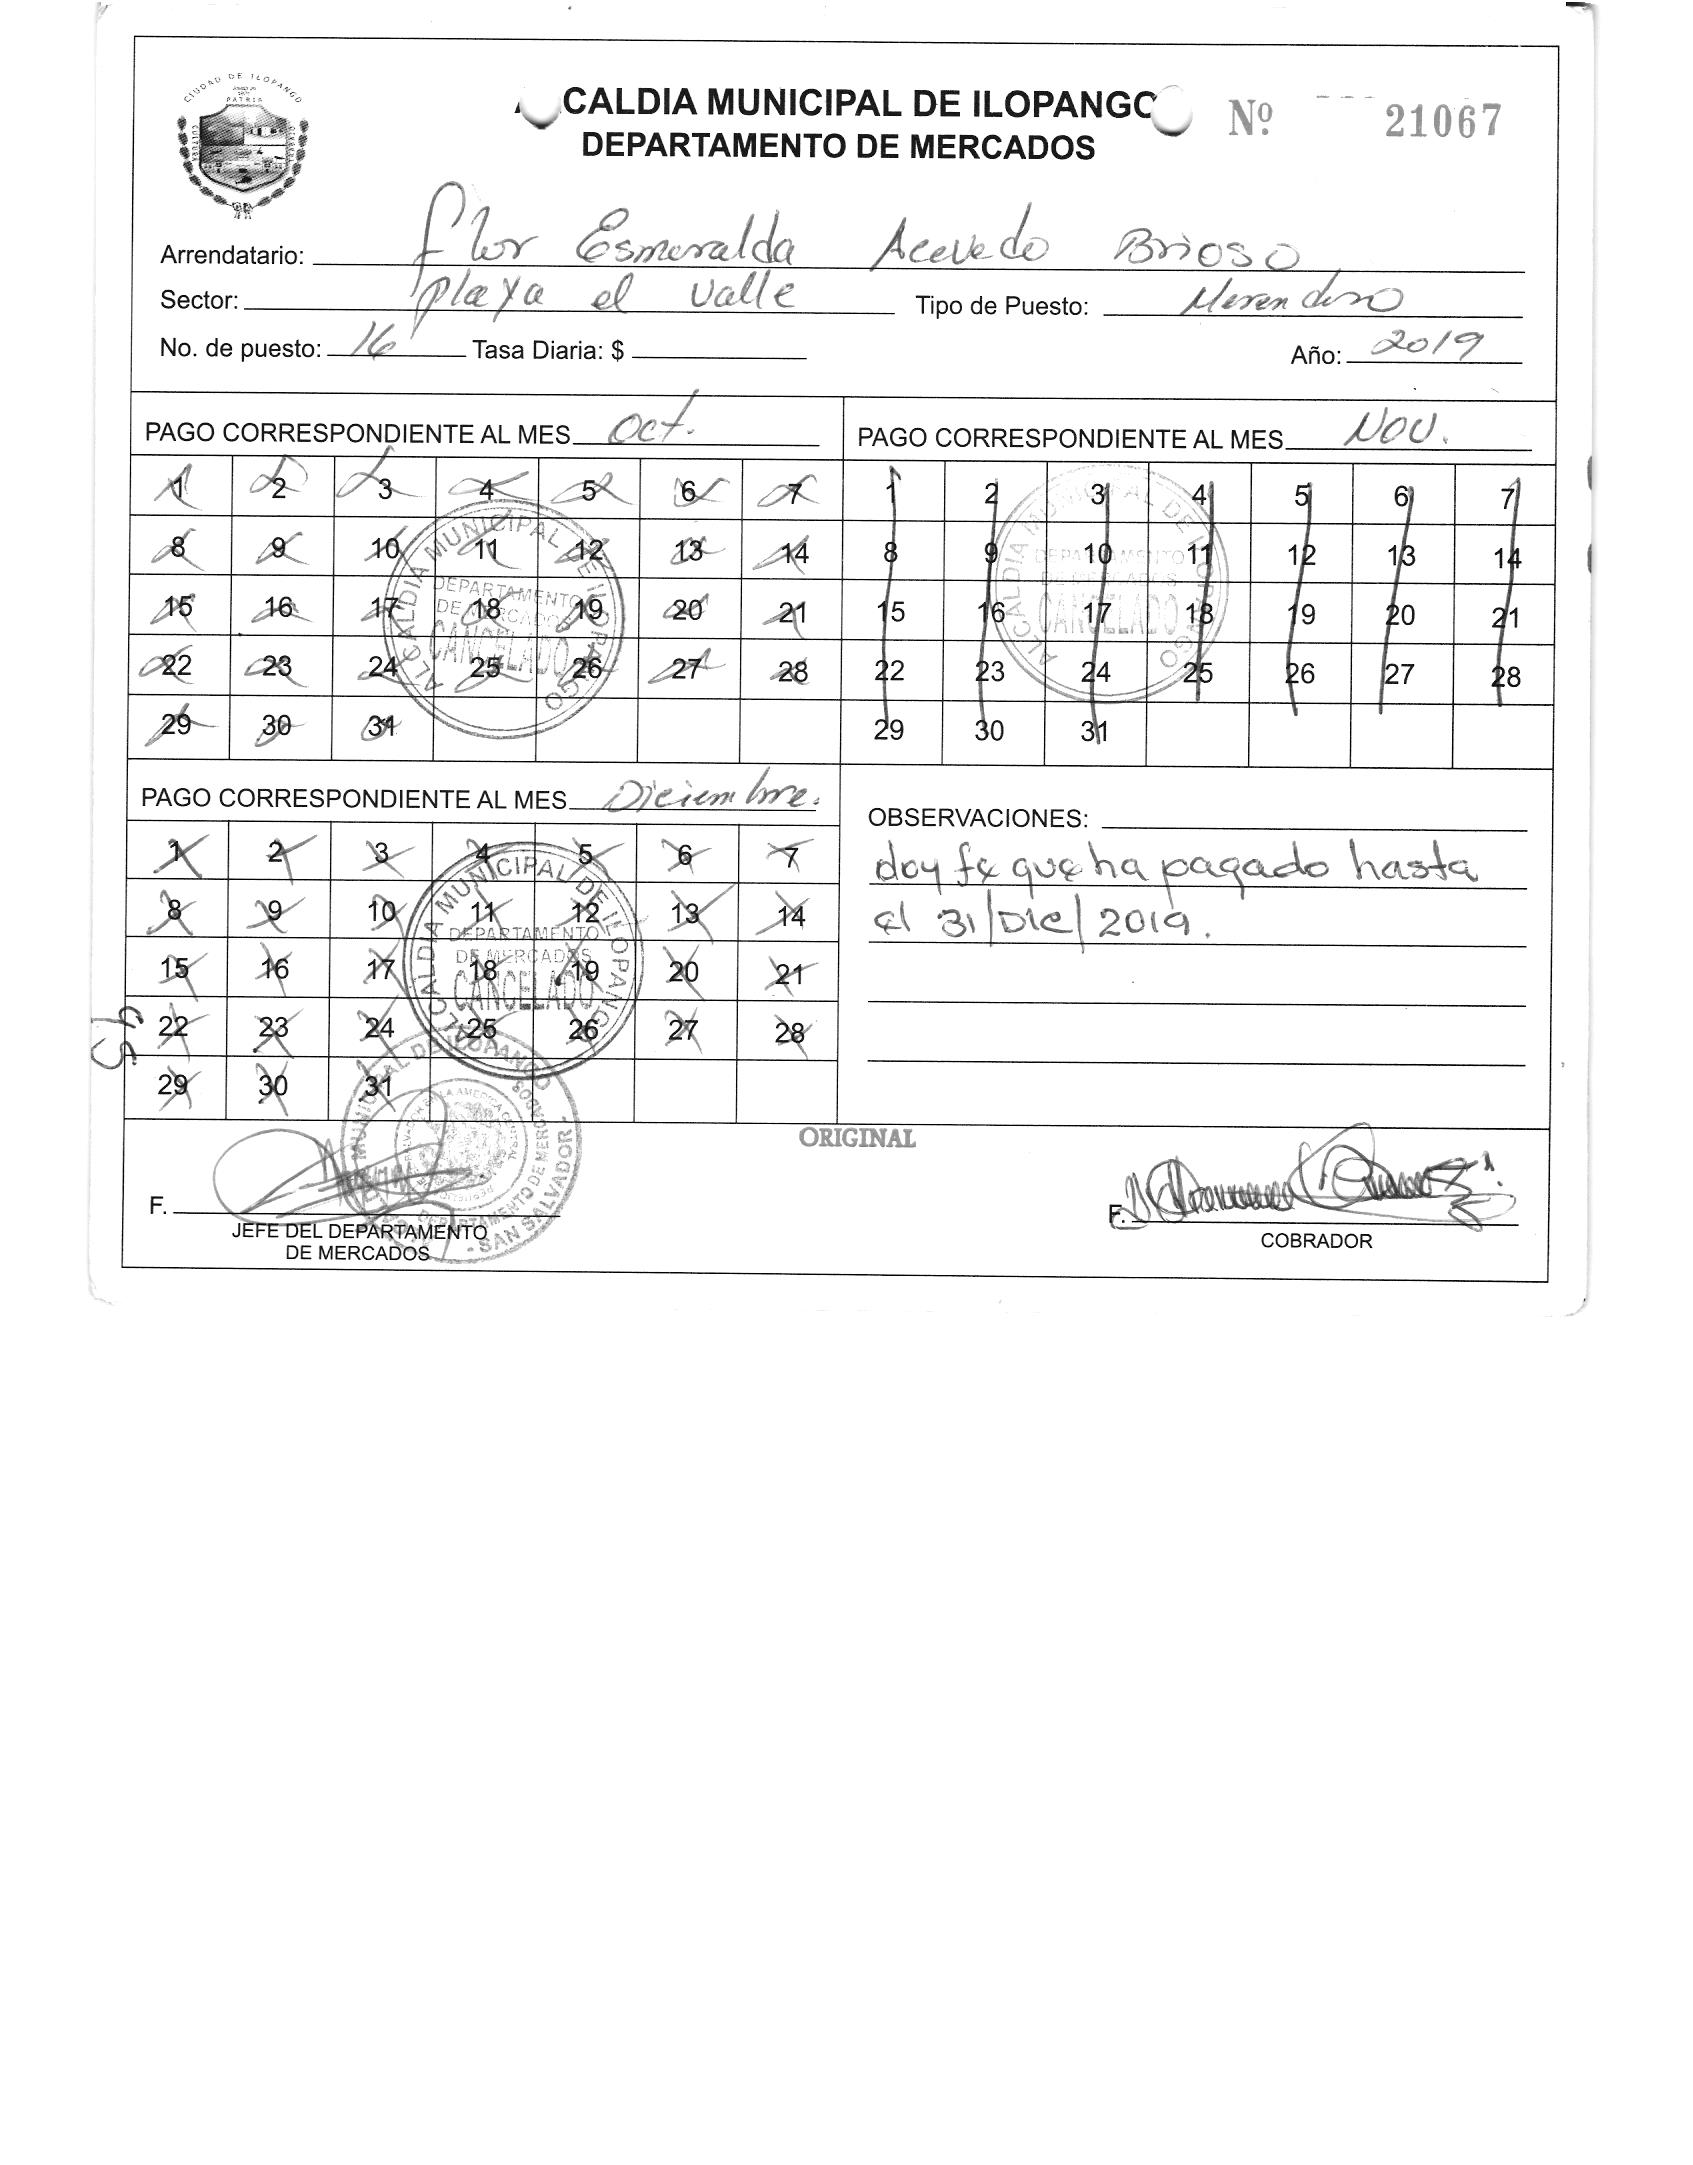 CIUDAD DE ILOPANGO
PATRIA
CULTURA
CALDIA MUNICIPAL DE ILOPANGO
Nº 21067
DEPARTAMENTO DE MERCADOS
Arrendatario: Flor Esmeralda Acevedo Brioso
Sector: Playa el Valle Tipo de Puesto:
No. de puesto: 16 Tasa Diaria: $ Año: 2019
PAGO CORRESPONDIENTE AL MES Oct.
1 2 3 4 5 6 7
8 9 10 11 12 13 14
15 16 17 18 19 20 21
22 23 24 25 26 27 28
29 30 31
ALCALDIA MUNICIPAL DE ILOPANGO
DEPARTAMENTO
DE MERCADOS
CANCELADO
PAGO CORRESPONDIENTE AL MES Nov.
1 2 3 4 5 6 7
8 9 10 11 12 13 14
15 16 17 18 19 20 21
22 23 24 25 26 27 28
29 30 31
ALCALDIA MUNICIPAL DE ILOPANGO
DEPARTAMENTO
DE MERCADOS
CANCELADO
PAGO CORRESPONDIENTE AL MES Diciembre.
1 2 3 4 5 6 7
8 9 10 11 12 13 14
15 16 17 18 19 20 21
22 23 24 25 26 27 28
29 30 31
ALCALDIA MUNICIPAL DE ILOPANGO
DEPARTAMENTO
DE MERCADOS
CANCELADO
OBSERVACIONES:
doy fe que ha pagado hasta
el 31/Dic/2019.
ORIGINAL
MUNICIPAL DE ILOPANGO
DEPARTAMENTO DE MERCADOS
- SAN SALVADOR -
F.
JEFE DEL DEPARTAMENTO
DE MERCADOS
F.
COBRADOR